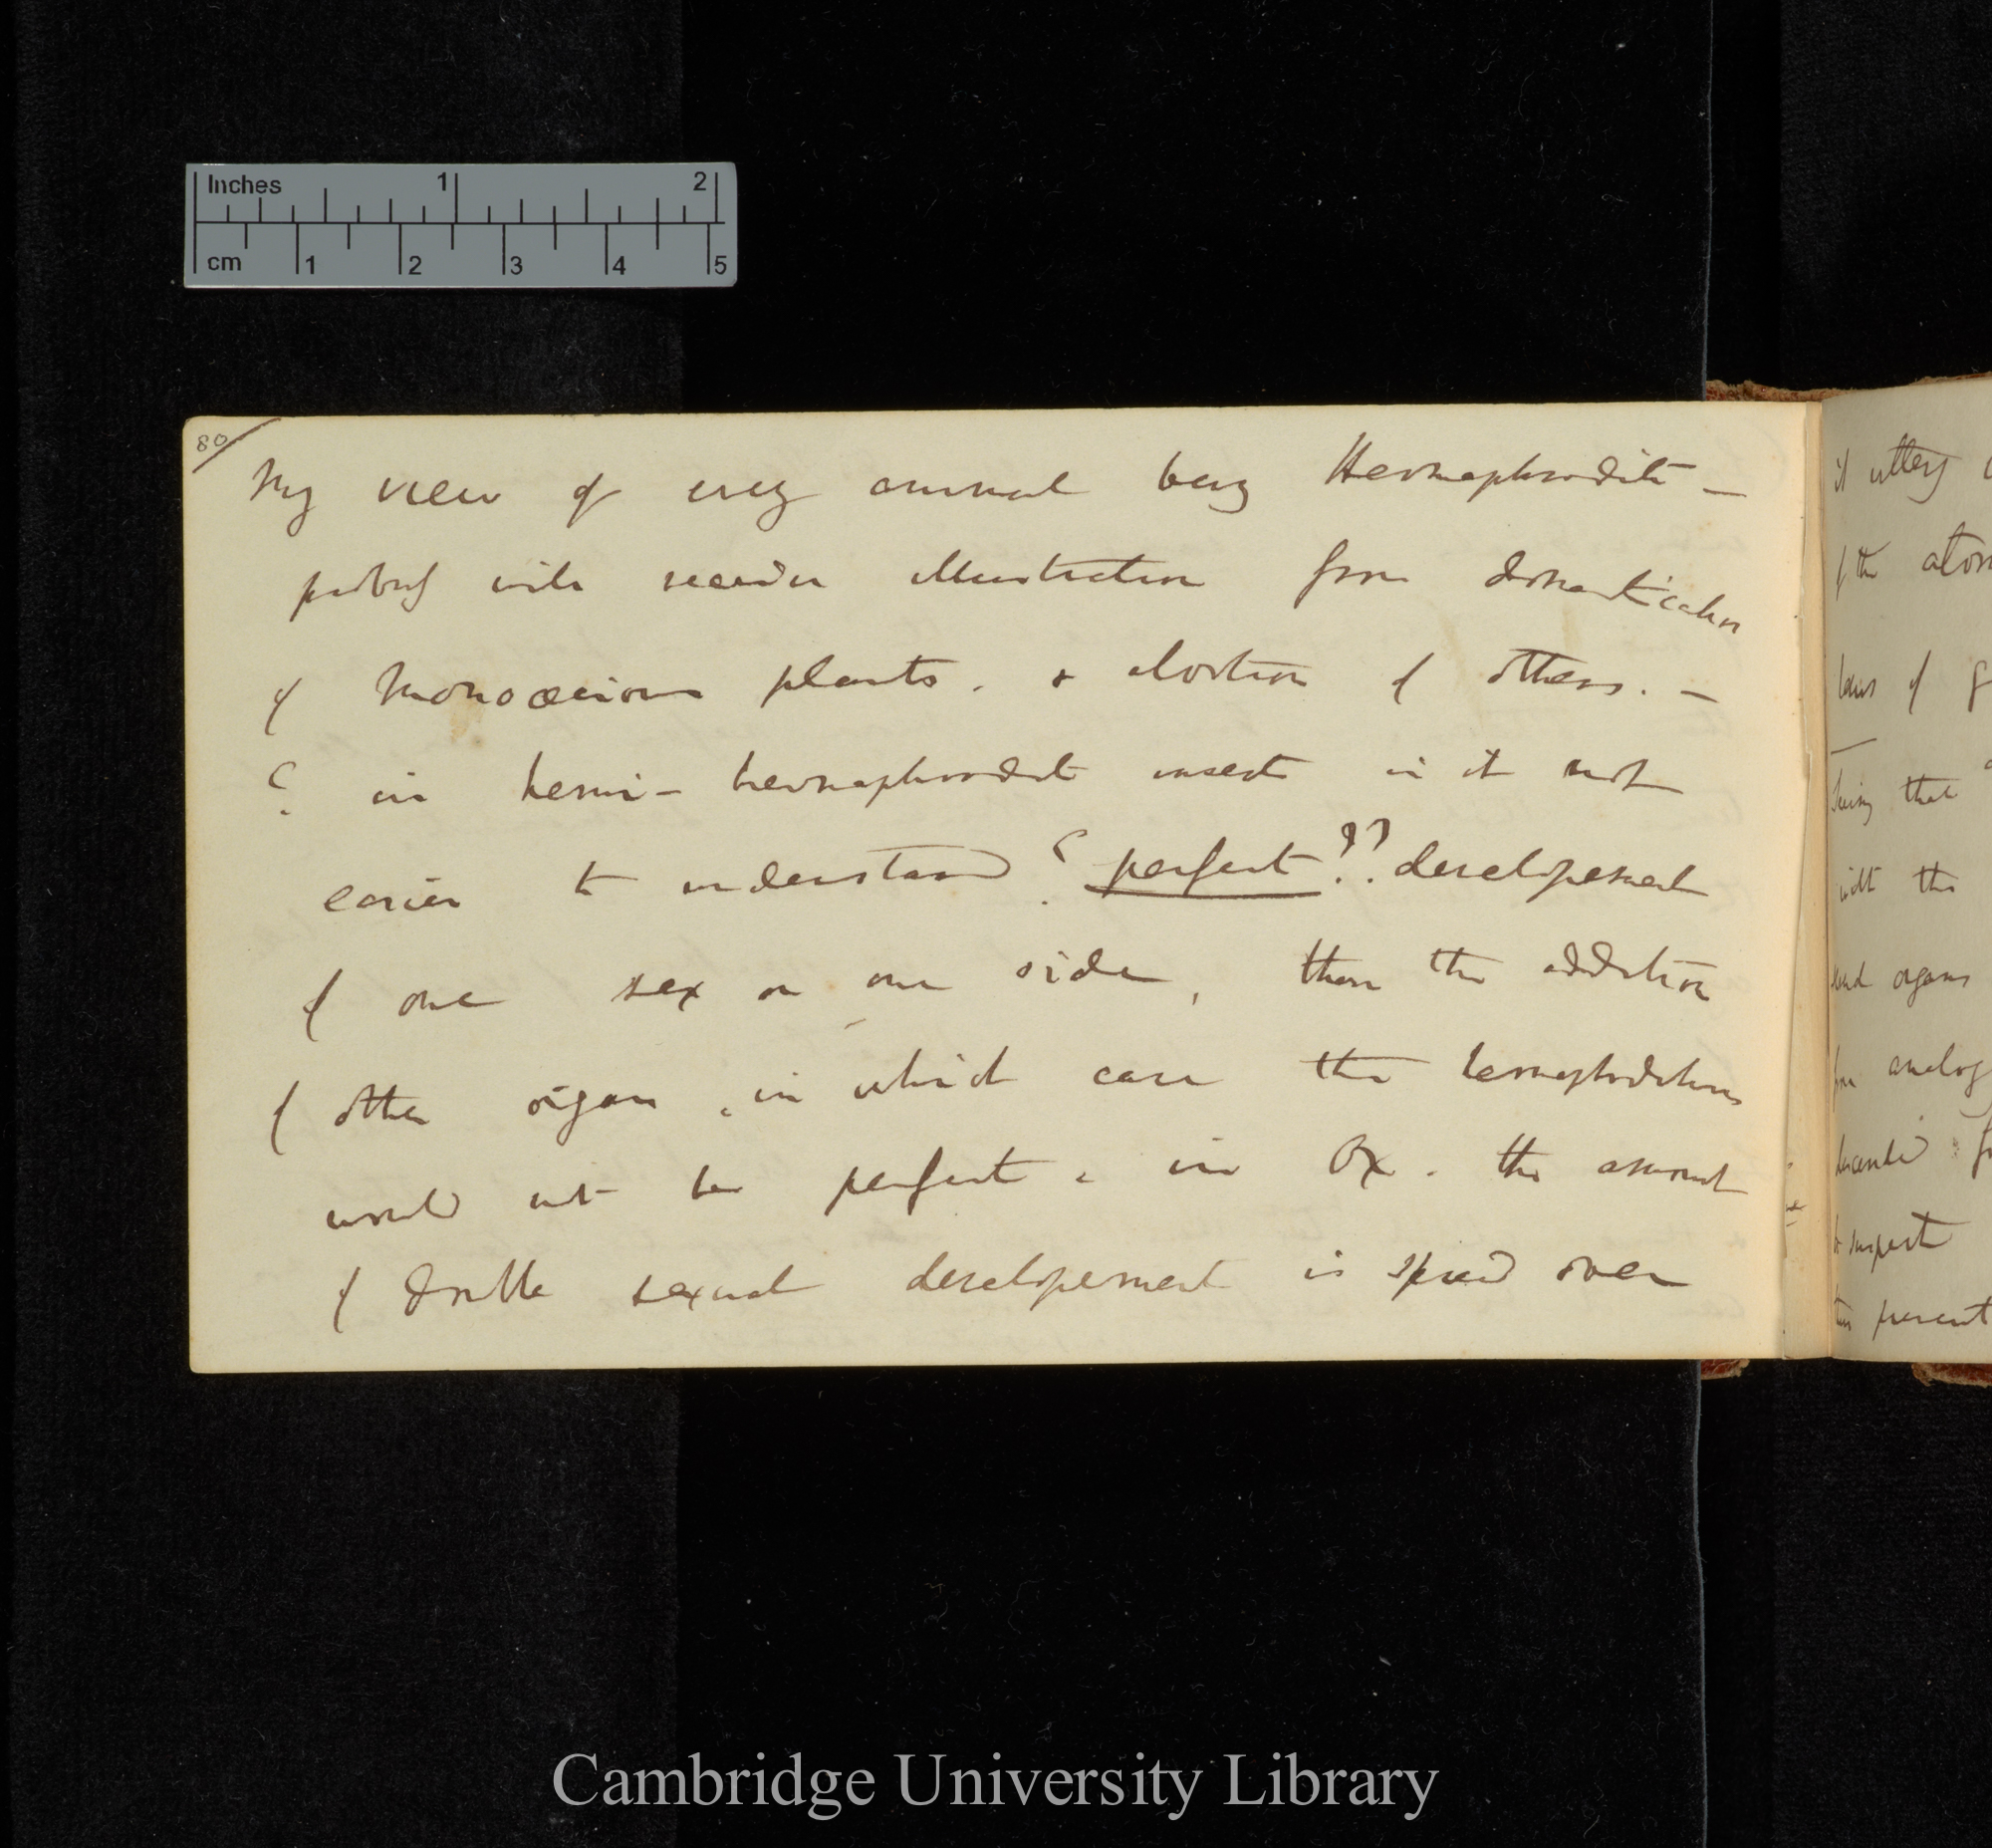 Inches 1 2
cm 1 2 3 4 5
80
My view of every animal being Hermaphrodite —
probably will receive illustration from domestication
of monoœcious plants. & abortion of others. —
¿ in hemi-hermaphrodite insect is it not
easier to understand ¿ perfect ?? developement
of one sex on one side, than the addition
of other organ, in which case the hermaphroditism
would not be perfect, in Ox. the amount
of double sexual developement is spread over
it utterly
of the atom
laws of g
that
with the
organs
analog
f
suspect
present
Cambridge University Library